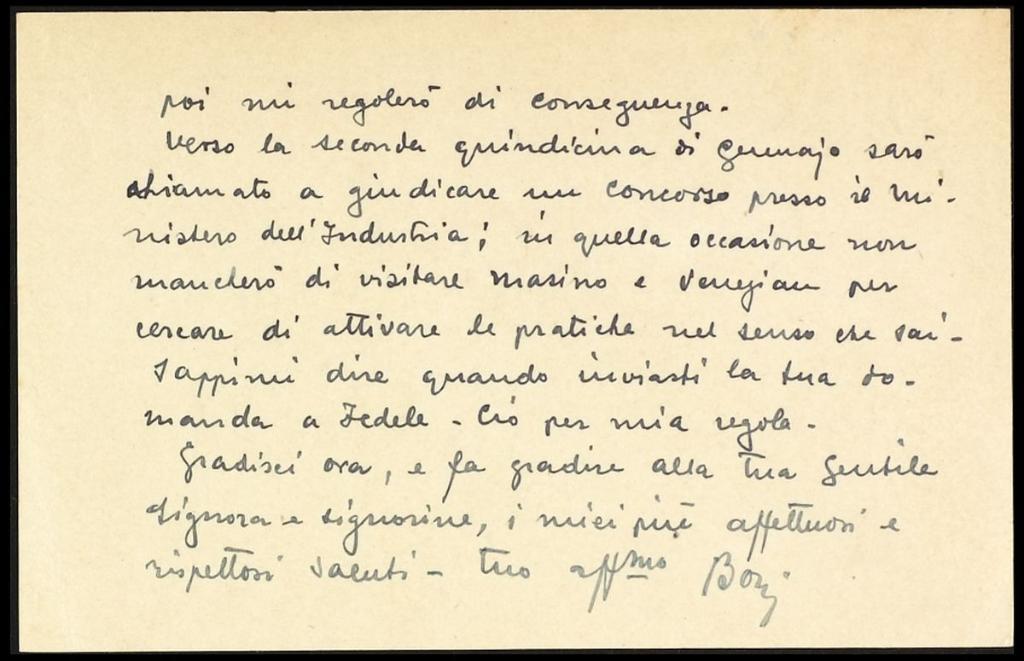 poi mi regolerò di conseguenza.
Verso la seconda quindicina di Gennajo sarò
chiamato a giudicare un concorso presso il Mi-
nistero dell'Industria; in quella occasione non
mancherò di visitare Masino e Venezian per
cercare di attivare le pratiche nel senso che sai-
Sappimi dire quando inviasti la tua do-
manda a Fedele - Ciò per mia regola -
Gradisci ora, e fa gradire alla tua Gentile
Signora e signorine, i miei più affettuosi e
rispettosi saluti - tuo affmo